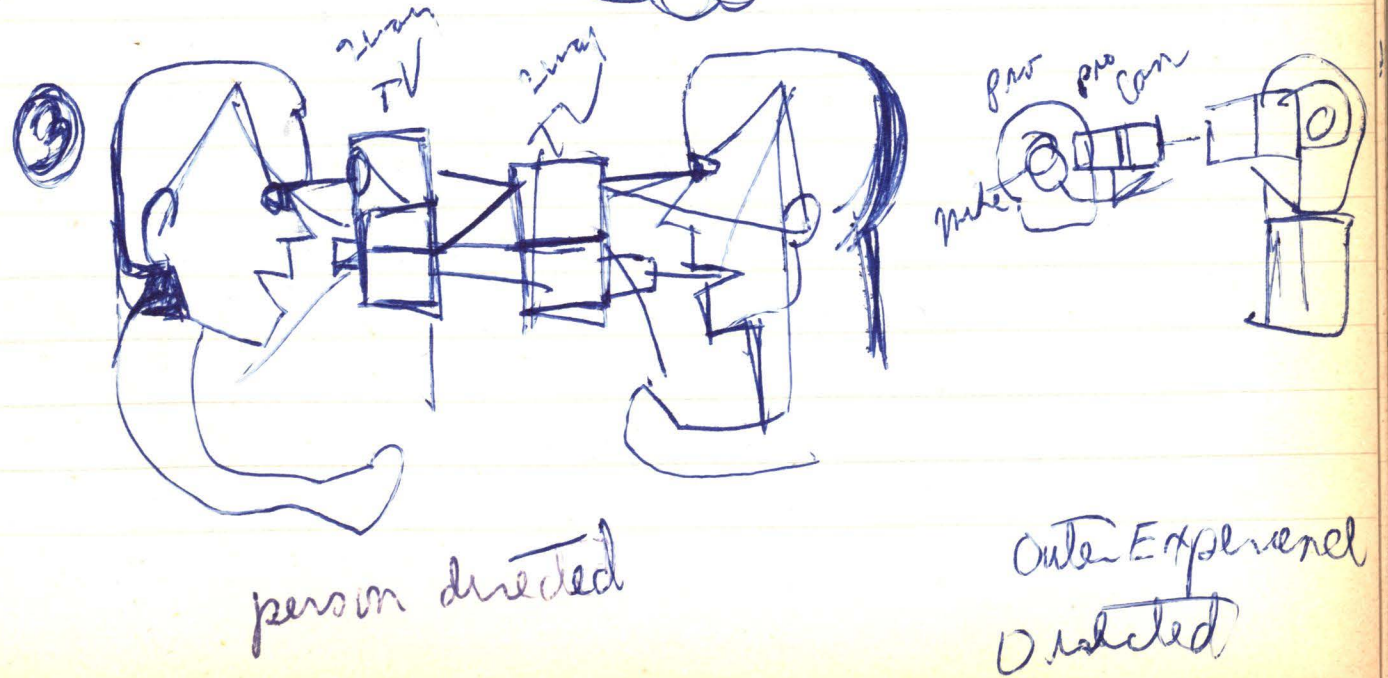 3
2way
TV
2way
TV
pro
pro
Cam
mike
person directed
Outer Experience
Directed